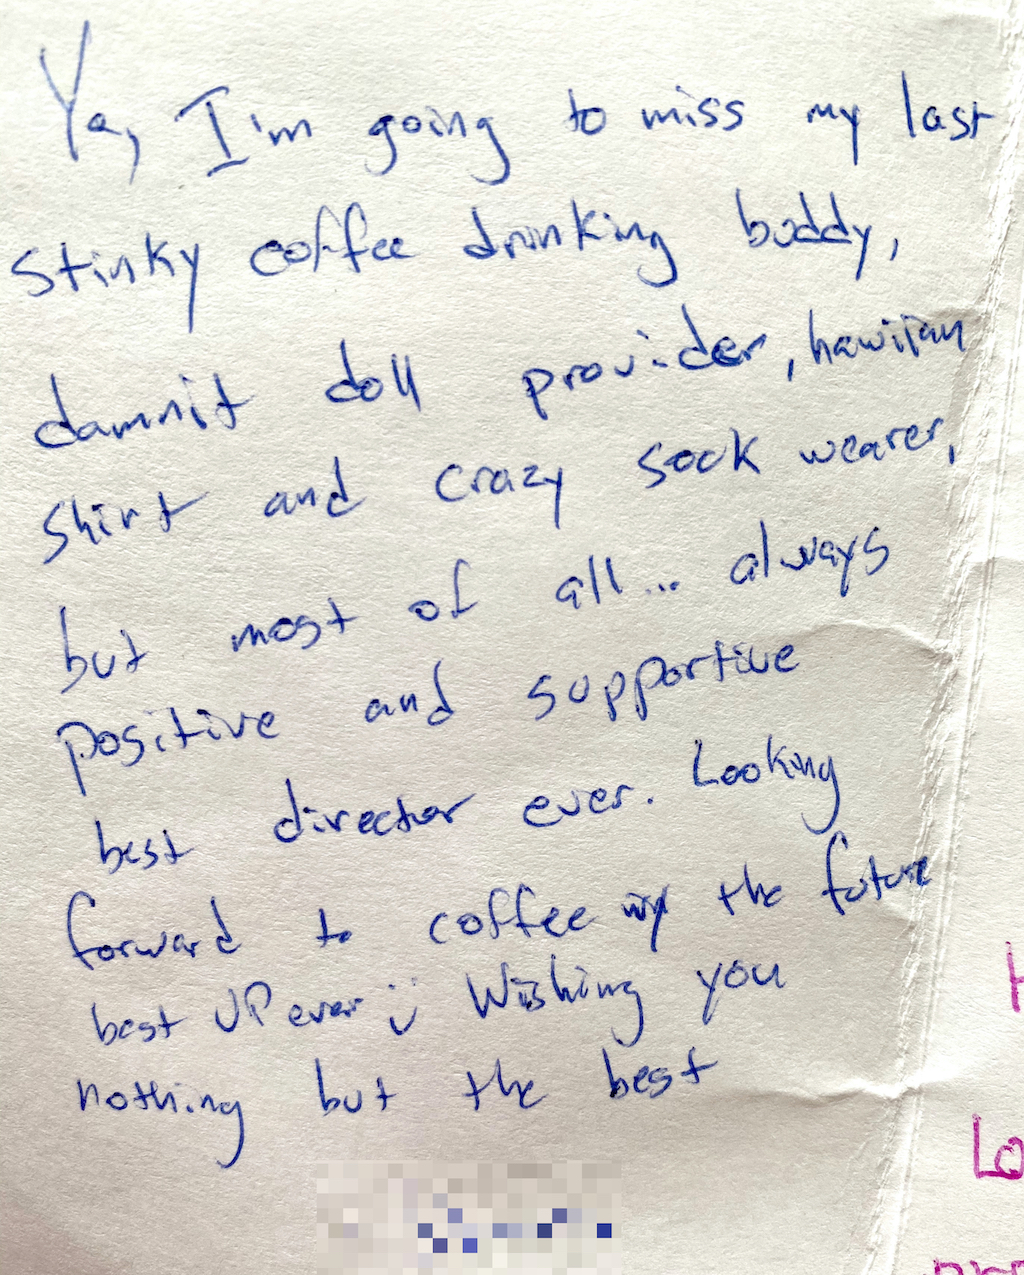 Ya, I'm going to miss my last
stinky coffee drinking buddy,
damnit doll provider, hawiian
shirt and crazy sock wearer,
but most of all... always
positive and supportive
best director ever. Looking
forward to coffee w/ the future
best VP ever :) Wishing you
nothing but the best
Lo